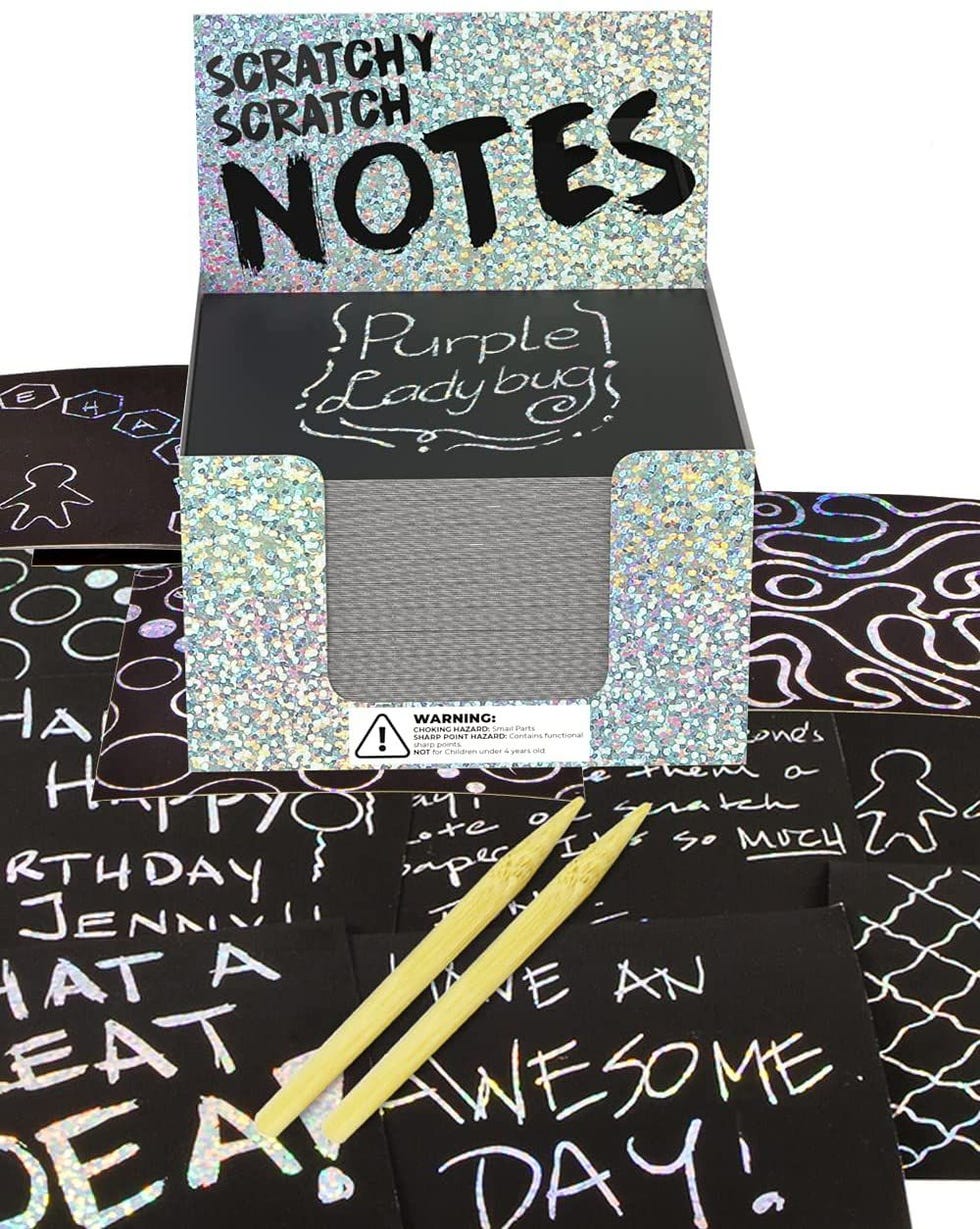 SCRATCHY
SCRATCH
NOTES
Purple
Ladybug
E H A
WARNING:
CHOKING HAZARD: Small Parts
SHARP POINT HAZARD: Contains functional
sharp points.
NOT for Children under 4 years old
HA
HAPPY
RTHDAY
JENNY!!
one's
e them a
ay!
ote of scratch
paper It's so MUCH
HAT A
EAT
DEA!
HAVE AN
AWESOME
DAY!